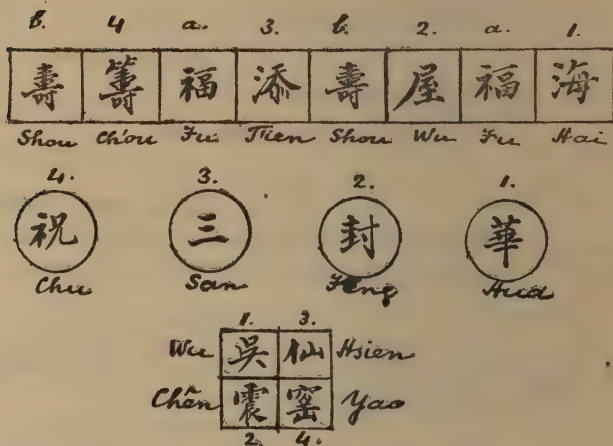 b. 4 a. 3. b. 2. a. 1.
壽 籌 福 添 壽 屋 福 海
Shou Ch'ou Fu Tien Shou Wu Fu Hai
4. 3. 2. 1.
祝 三 封 華
Chu San Fêng Hua
1. 3.
Wu 吳 仙 Hsien
Chên 震 窰 Yao
2. 4.